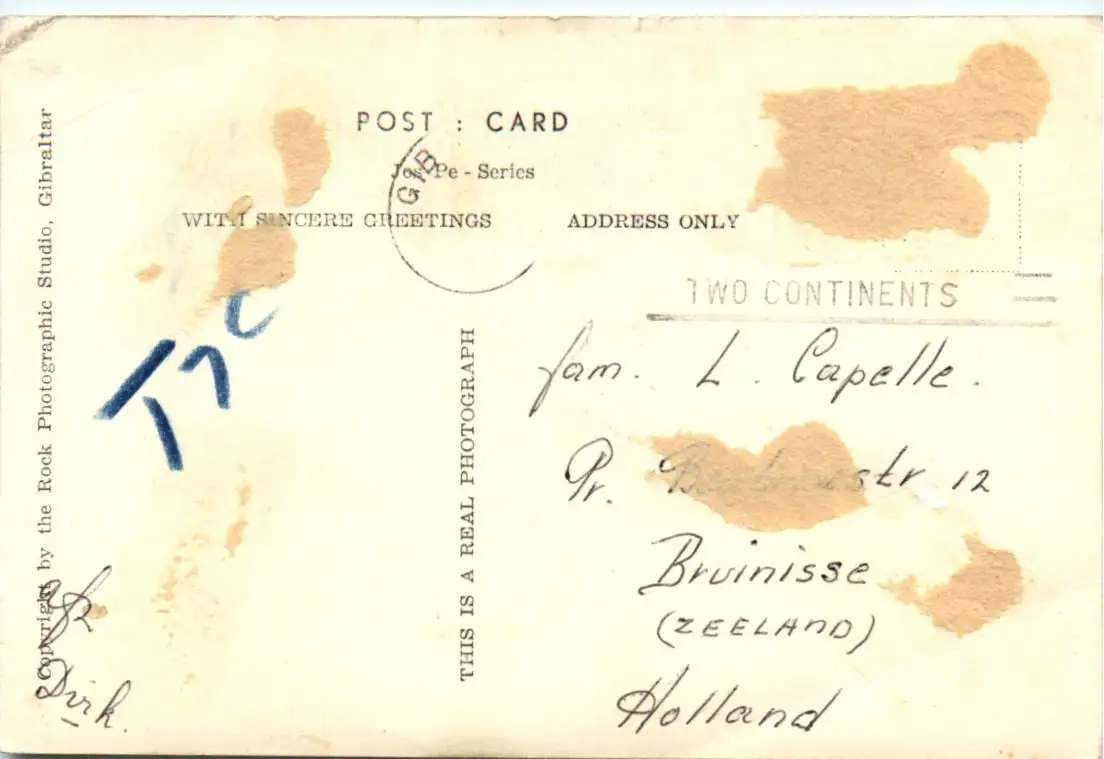 POST : CARD
Jos Pe - Series
WITH SINCERE GREETINGS
ADDRESS ONLY
GIB
TWO CONTINENTS
fam. L. Capelle.
Pr. str 12
Bruinisse
(ZEELAND)
Holland
THIS IS A REAL PHOTOGRAPH
Copyright by the Rock Photographic Studio, Gibraltar
Dirk.